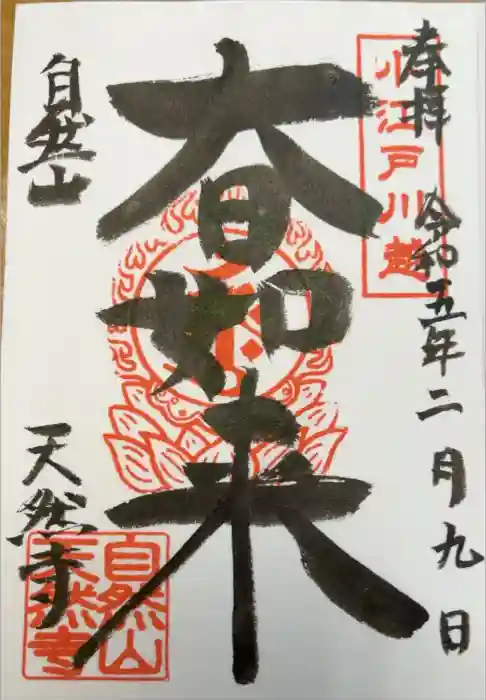 奉拝
令和五年二月九日
小江戸川越
大日如来
自然山
天然寺
自然山
天然寺